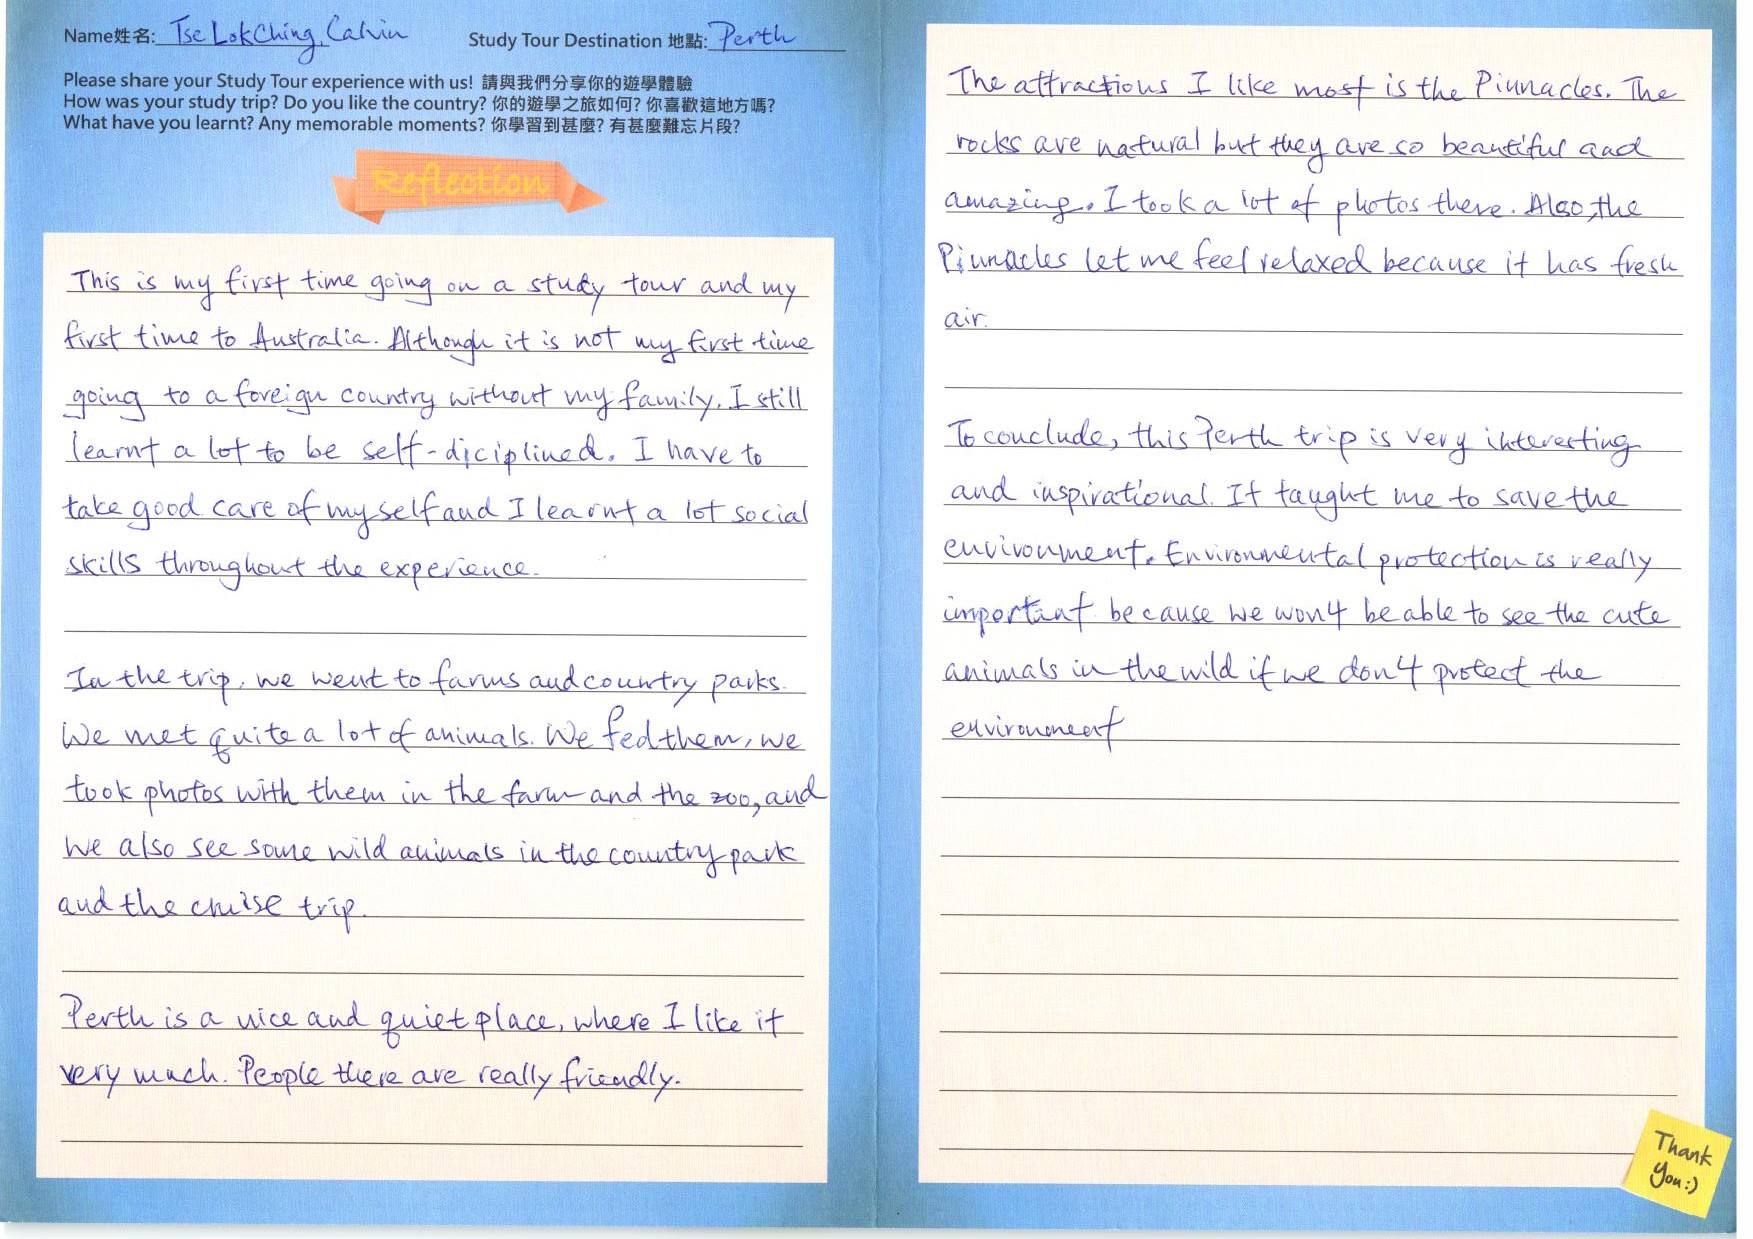 Name姓名: Tse Lok Ching, Calvin
Study Tour Destination 地點: Perth
Please share your Study Tour experience with us! 請與我們分享你的遊學體驗
How was your study trip? Do you like the country? 你的遊學之旅如何? 你喜歡這地方嗎?
What have you learnt? Any memorable moments? 你學習到甚麼? 有甚麼難忘片段?
Reflection
This is my first time going on a study tour and my
first time to Australia. Although it is not my first time
going to a foreign country without my family, I still
learnt a lot to be self-diciplined. I have to
take good care of myself and I learnt a lot social
skills throughout the experience.
In the trip, we went to farms and country parks.
We met quite a lot of animals. We fed them, we
took photos with them in the farm and the zoo, and
we also see some wild animals in the country park
and the cruise trip.
Perth is a nice and quiet place, where I like it
very much. People there are really friendly.
The attractions I like most is the Pinnacles. The
rocks are natural but they are so beautiful and
amazing. I took a lot of photos there. Also, the
Pinnacles let me feel relaxed because it has fresh
air.
To conclude, this Perth trip is very interesting
and inspirational. It taught me to save the
environment. Environmental protection is really
important because we won't be able to see the cute
animals in the wild if we don't protect the
environment
Thank
you :)